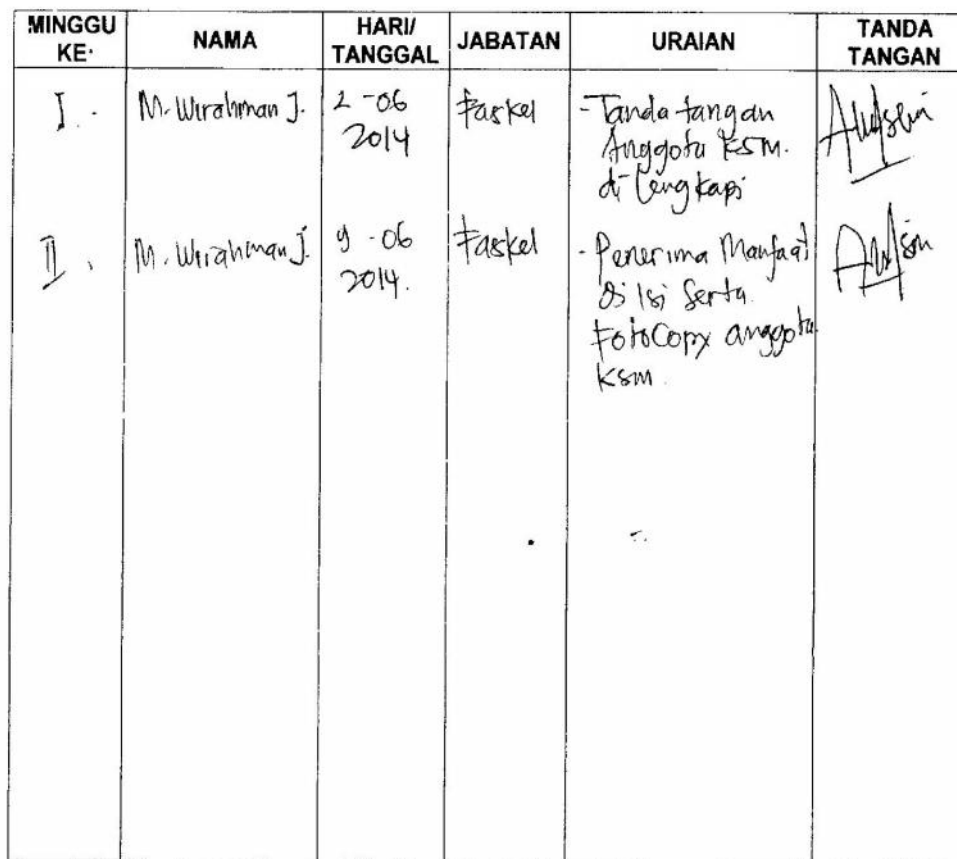 MINGGU KE· NAMA HARI/ TANGGAL JABATAN URAIAN TANDA TANGAN
I. M. Wirahman J. 2-06 Faskel - Tanda tangan
2014 Anggota KSM.
di lengkapi
II. M. Wirahman J. 9-06 Faskel - Penerima Manfaat
2014. di isi serta
FotoCopy anggota
KSM.